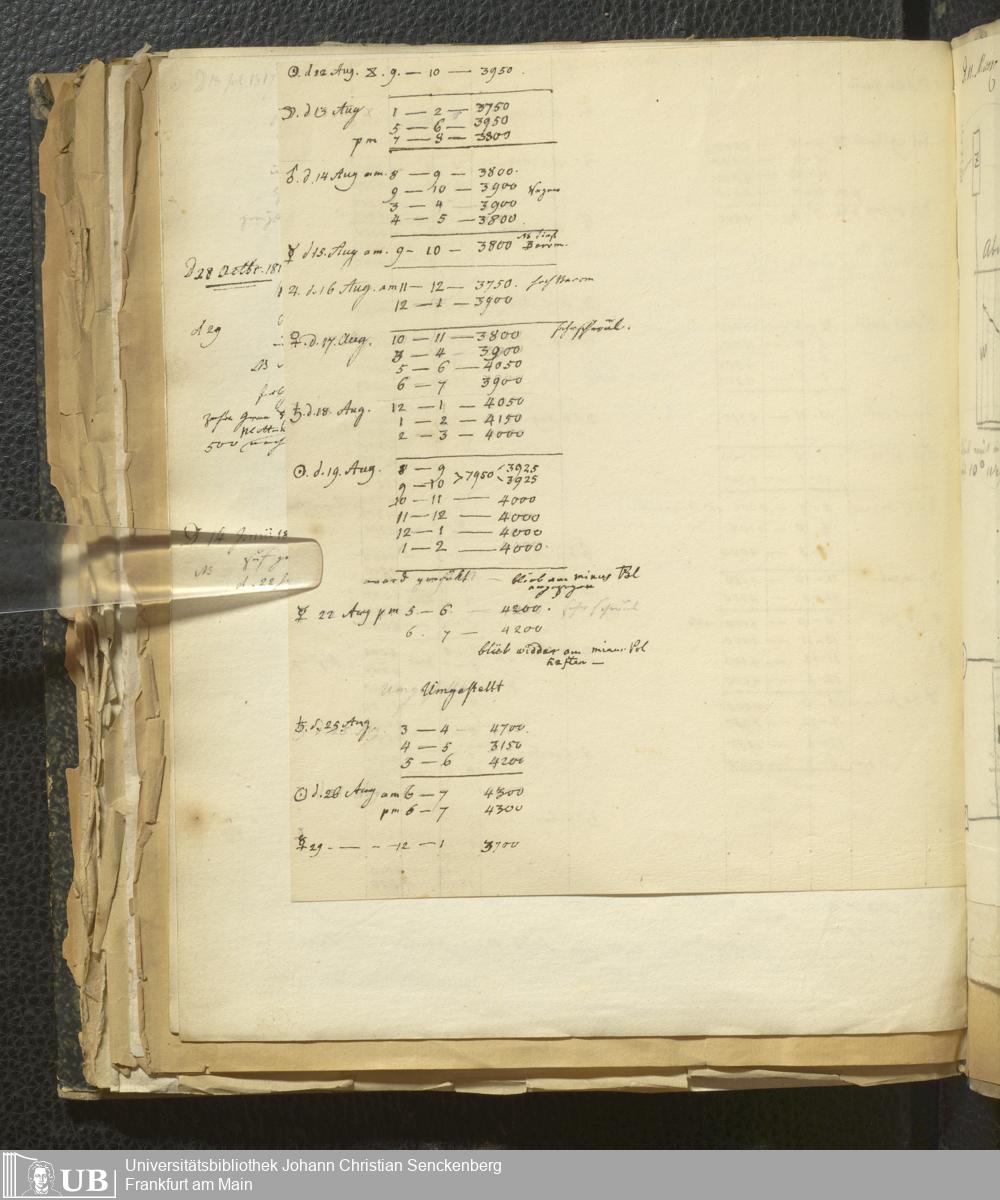 ☉. d 12 Aug. 9. — 10 — 3950.
☽. d 13 Aug 1 — 2 — 3750
5 — 6 — 3950
pm 7 — 8 — 3800
d. 14 Aug am. 8 — 9 — 3800.
9 — 10 — 3900
3 — 4 — 3900
4 — 5 — 3800.
☿ d 15. Aug am. 9 — 10 — 3800 NB tief Barom.
♃. d. 16 Aug. am 11 — 12 — 3750. hoh Barom
12 — 1 — 3900
♀. d. 17. Aug. 10 — 11 — 3800 sehr schwül.
3 — 4 3900
5 — 6 — 4050
6 — 7 3900
♄. d. 18. Aug. 12 — 1 — 4050
1 — 2 — 4150
2 — 3 — 4000
☉. d. 19. Aug. 8 — 9 > 7950 < 3925
9 — 10 3925
10 — 11 — 4000
11 — 12 — 4000
12 — 1 — 4000
1 — 2 — 4000.
ward blieb am minus Pol
☿ 22 Aug pm 5 — 6 4200. sehr schwül
6. 7 — 4200
blieb widder am minus Pol
haften —
Umgestellt
♄. d. 25 Aug. 3 — 4 4700.
4 — 5 3150
5 — 6 4200
☉ d. 26 Aug am 6 — 7 4300
pm 6 — 7 4300
☿ 29 - — - 12 — 1 3700
d 28 Octbr. 181
d 29
NB
500 nach
14 Junii 18
NB
d. 22
Universitätsbibliothek Johann Christian Senckenberg
Frankfurt am Main
UB